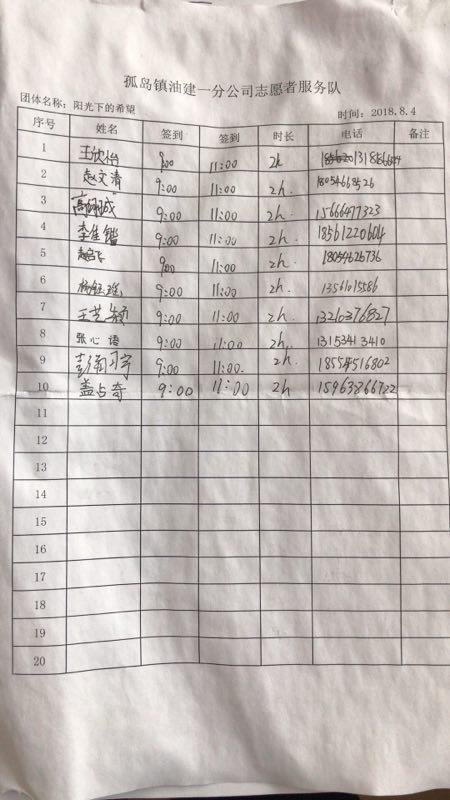 孤岛镇油建一分公司志愿者服务队
团体名称：阳光下的希望 时间：2018.8.4
序号 姓名 签到 签到 时长 电话 备注
1 王欣怡 9:00 11:00 2h
2 赵文清 9:00 11:00 2h. 18054668526
3 9:00 11:00 2h. 15666477323
4 李佳锴 9:00 11:00 2h. 18561220604
5 9:00 11:00 2h. 18054626736
6 9:00 11:00 2h. 1356101586
7 王艺颖 9:00 11:00 2h. 13210376827
8 张心语 9:00 11:00 2h. 13153413410
9 9:00 11:00. 2h. 18554516802
10 盖占奇 9:00 11:00 2h 15963866722
11
12
13
14
15
16
17
18
19
20